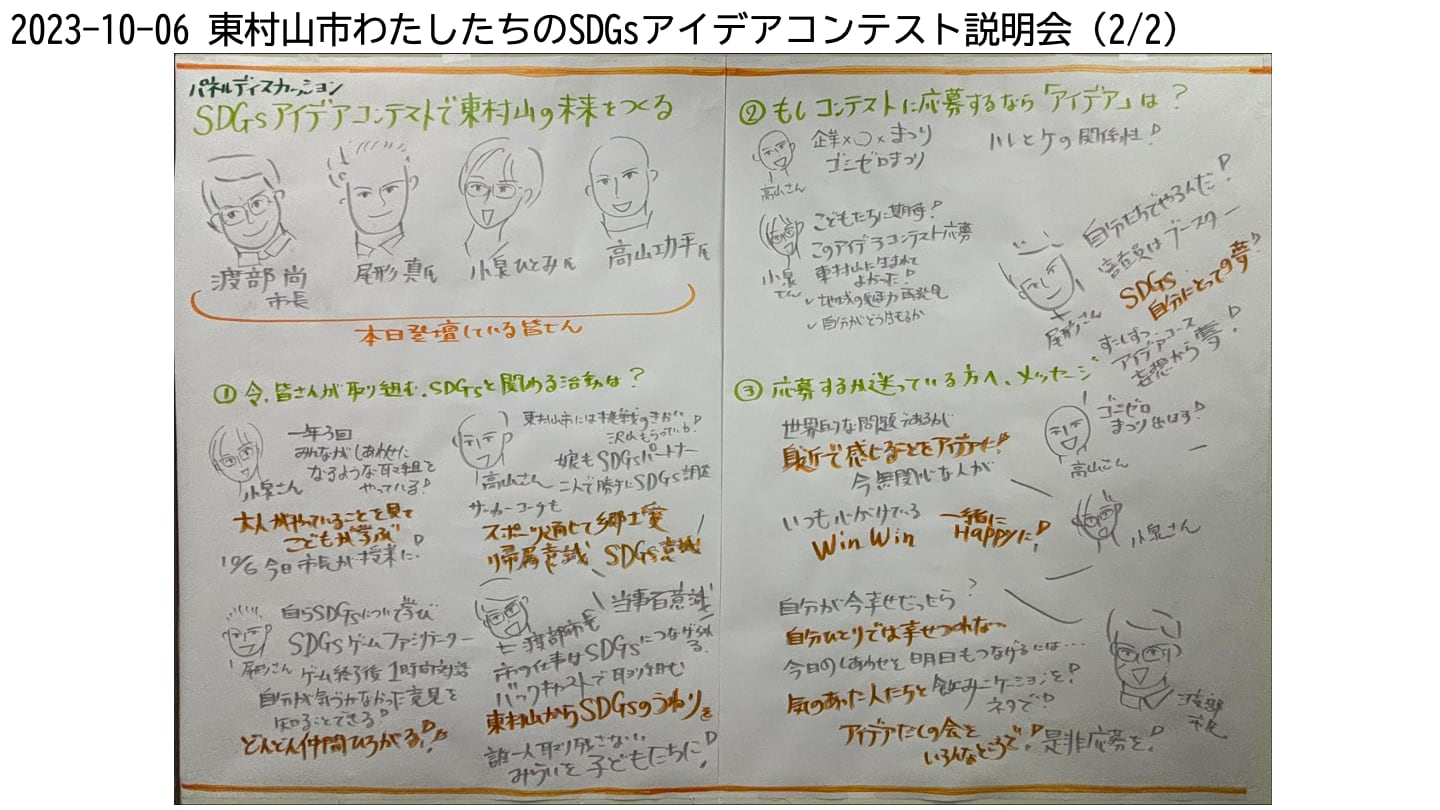 2023-10-06 東村山市わたしたちのSDGsアイデアコンテスト説明会（2/2）
パネルディスカッション
SDGsアイデアコンテストで東村山の未来をつくる
渡部 尚
市長
尾形 真氏
小泉ひとみ氏
高山功平氏
本日登壇している皆さん
① 今、皆さんが取り組む、SDGsと関める活動は？
小泉さん
一年3回
みんながしあわせに
なるような取組を
やっている！
大人がやっていることを見て
こどもが学ぶ
10/6 今日市長が授業に！
高山さん
東村山市には挑戦のきかい
沢山もらっている！
娘もSDGsパートナー
二人で勝手にSDGs調査
サッカーコーチも
スポーツ通じて郷土愛
帰属意識 SDGs意識
尾形さん
自らSDGsについて学び
SDGsゲームファシリテーター
ゲーム終了後 1時間対話
自分が気づかなかった意見を
知ることできる！
どんどん仲間ひろがる！
渡部市長
当事者意識
市の仕事はSDGsにつなげられる
バックキャストで取り組む
東村山からSDGsのうねりを
誰一人取り残さない
みらいを 子どもたちに！
② もしコンテストに応募するなら「アイデア」は？
高山さん
企業×〇×まつり
ゴミゼロまつり
ハレとケの関係性！
小泉さん
こどもたちに期待！
このアイデアコンテスト応募
東村山に生まれて
よかった！
✓地域の魅力再発見
✓自分がどう生きるか
尾形さん
自分たちでやるんだ！
審査員はブースター
SDGs
自分にとっての夢！
すしずっ
アイデアコース
妄想から夢！
③ 応募するか迷っている方へ、メッセージ
世界的な問題であるが
身近で感じることをアイデアに！
今無関心な人が
高山さん
ゴミゼロ
まつり出ます！
いつも心がけている
Win Win 一緒に
Happyに！
小泉さん
自分が今幸せだったら？
自分ひとりでは幸せつくれない
今日のしあわせを明日もつなげるには…
気のあった人たちと 飲みニケーションを！
ネタで！
アイデアだしの会を
いろんなところで！是非応募を！
渡部市長